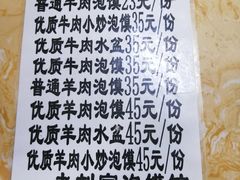 普通牛肉泡馍25元/份
优质牛肉泡馍35元/份
优质牛肉小炒泡馍35元/份
优质牛肉水盆35元/份
普通羊肉泡馍35元/份
优质羊肉泡馍45元/份
优质羊肉水盆45元/份
优质羊肉小炒泡馍45元/份